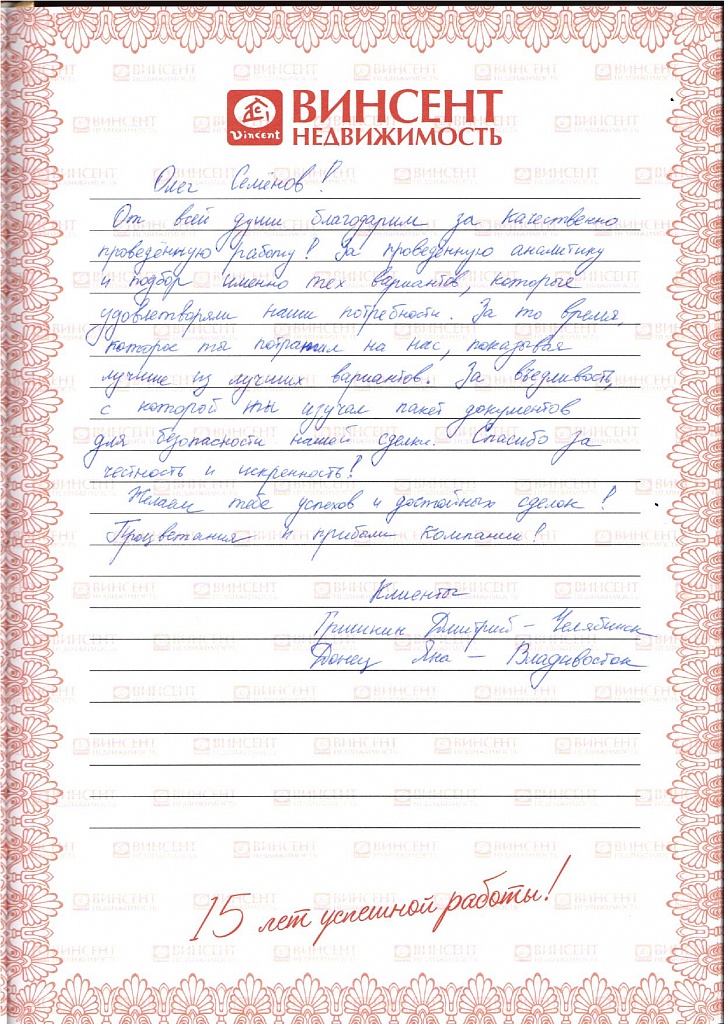 Vincent
ВИНСЕНТ
НЕДВИЖИМОСТЬ
Олег Семёнов!
От всей души благодарим за качественно
проведённую работу! За проведённую аналитику
и подбор именно тех вариантов, которые
удовлетворяли наши потребности. За то время,
которое ты потратил на нас, показывая
лучшие из лучших вариантов. За въедливость,
с которой ты изучал пакет документов
для безопасности нашей сделки. Спасибо за
честность и искренность!
Желаем тебе успехов и достойных сделок!
Процветания и прибыли компании!
Клиенты
Гришкин Дмитрий – Челябинск
Донец Яна – Владивосток
15 лет успешной работы!